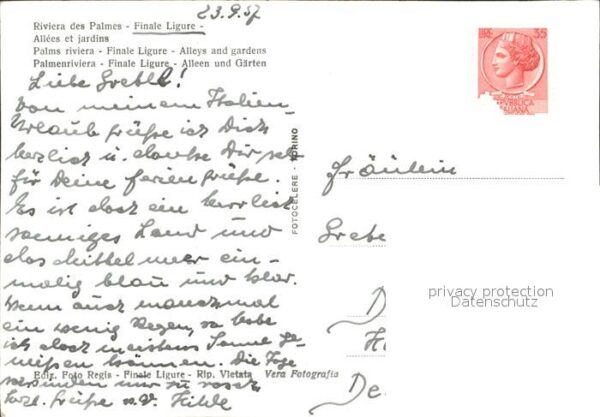 23.9.57
Riviera des Palmes - Finale Ligure -
Allées et jardins
Palms riviera - Finale Ligure - Alleys and gardens
Palmenriviera - Finale Ligure - Alleen und Gärten
LIRE 35
REPUBBLICA
ITALIANA
Liebe Gretl!
Von meinem Italien-
Urlaub grüße ich Dich
herzlich u. danke Dir sehr
für Deine Feriengrüße.
Es ist doch ein herrlich
sonniges Land und
das Mittelmeer ein-
malig blau und klar.
Wenn auch manchmal
ein wenig Regen, so habe
ich doch meistens Sonne ge-
nießen können. Die Tage
schwinden nur zu rasch
Herzl. Grüße
FOTOCELERE - TORINO
Fräulein
Grete
D
H
De
privacy protection
Datenschutz
Ediz. Foto Regis - Finale Ligure - Rip. Vietata Vera Fotografia